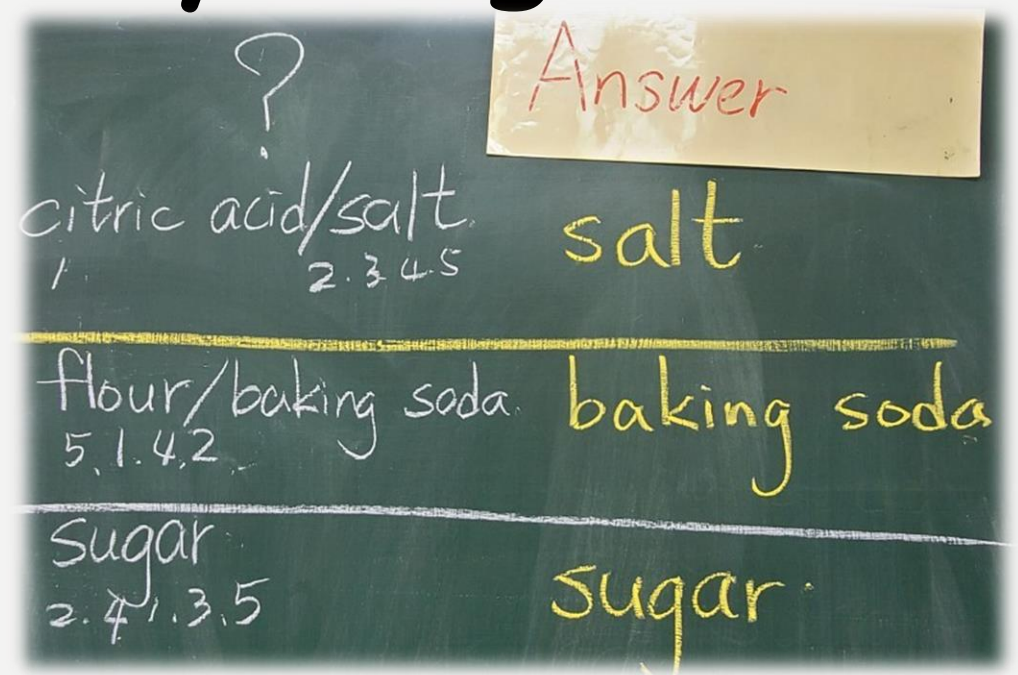 ?
Answer
citric acid/salt.
1. 2.3.4.5
salt
flour/baking soda.
5.1.4.2.
baking soda
sugar
2.4.1.3.5
sugar